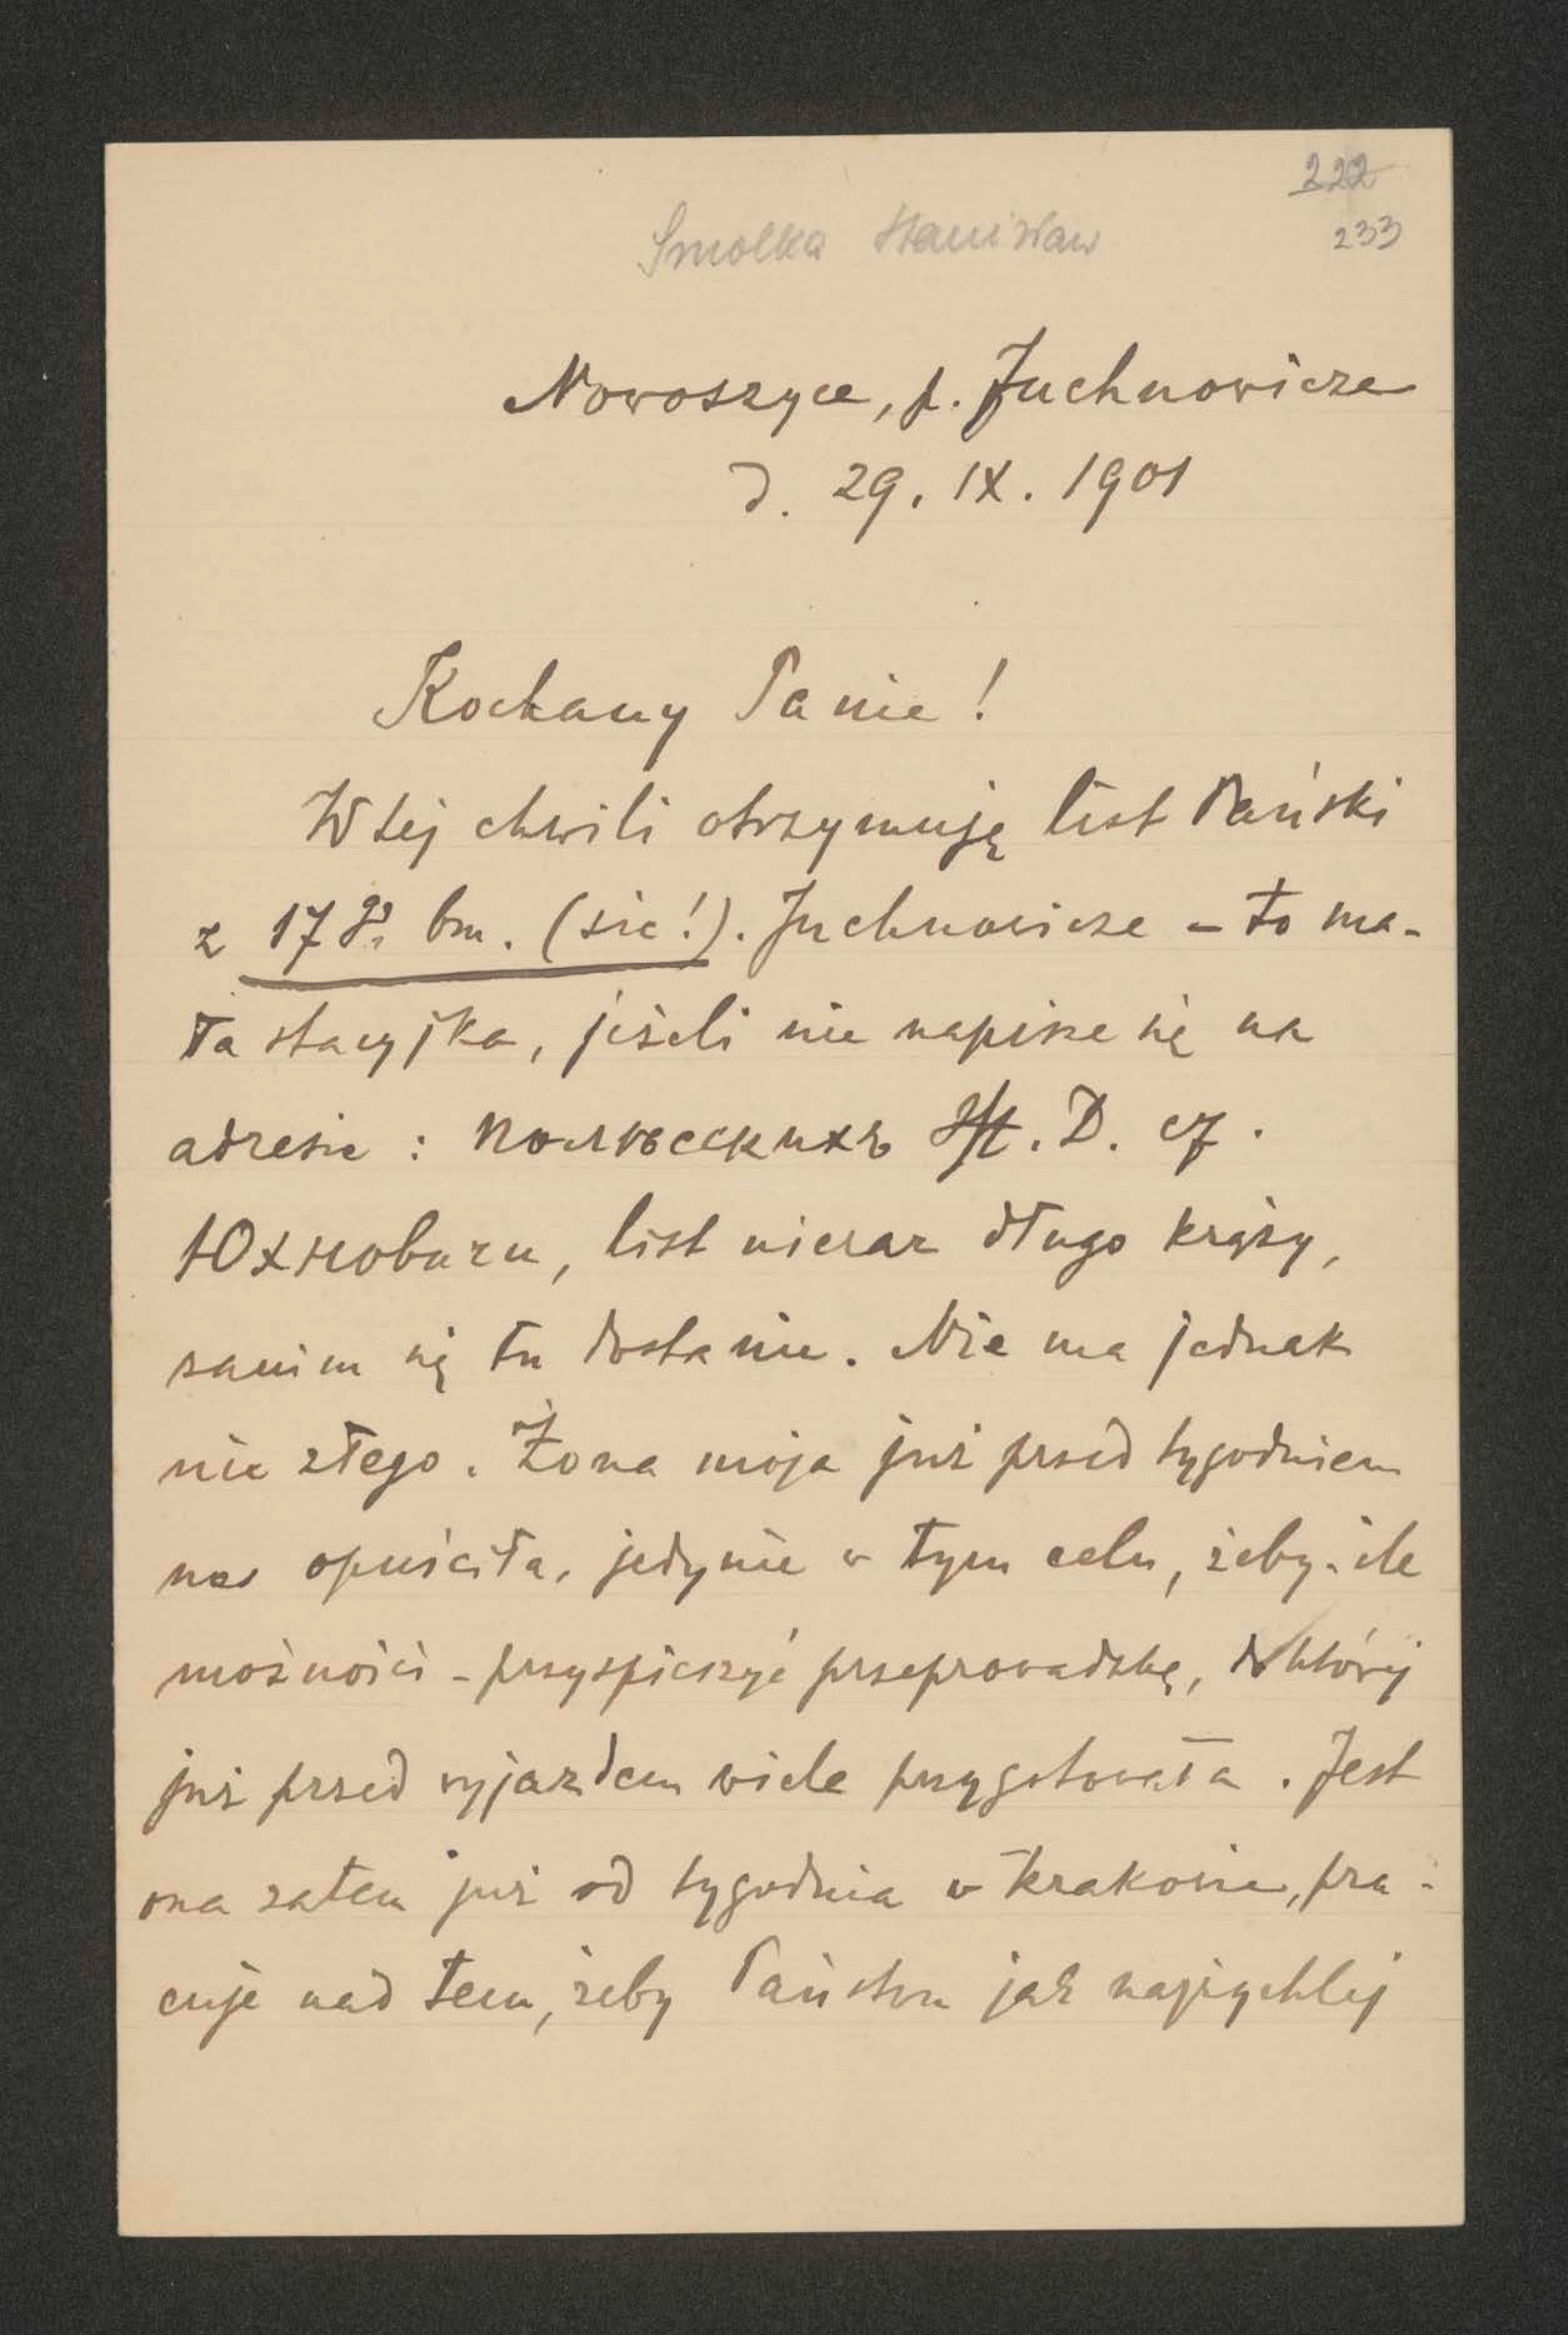 222
233
Smolka Stanisław
Nowoszyce, p. Juchnowicze
d. 29. IX. 1901
Kochany Panie!
W tej chwili otrzymuję list Pański
z 17 go bm. (sic!). Juchnowicze – to ma-
ła stacyjka, jeżeli nie napisze się na
adresie: Полѣсскихъ D. ст.
Юхновичи, list nieraz długo krąży,
zanim się tu dostanie. Nie ma jednak
nic złego. Żona moja już przed tygodniem
nas opuściła, jedynie w tym celu, żeby - ile
możności - przyspieszyć przeprowadzkę, do której
już przed wyjazdem wiele przygotowała. Jest
ona zatem już od tygodnia w Krakowie, pra-
cuje nad tem, żeby Państwu jak najrychlej